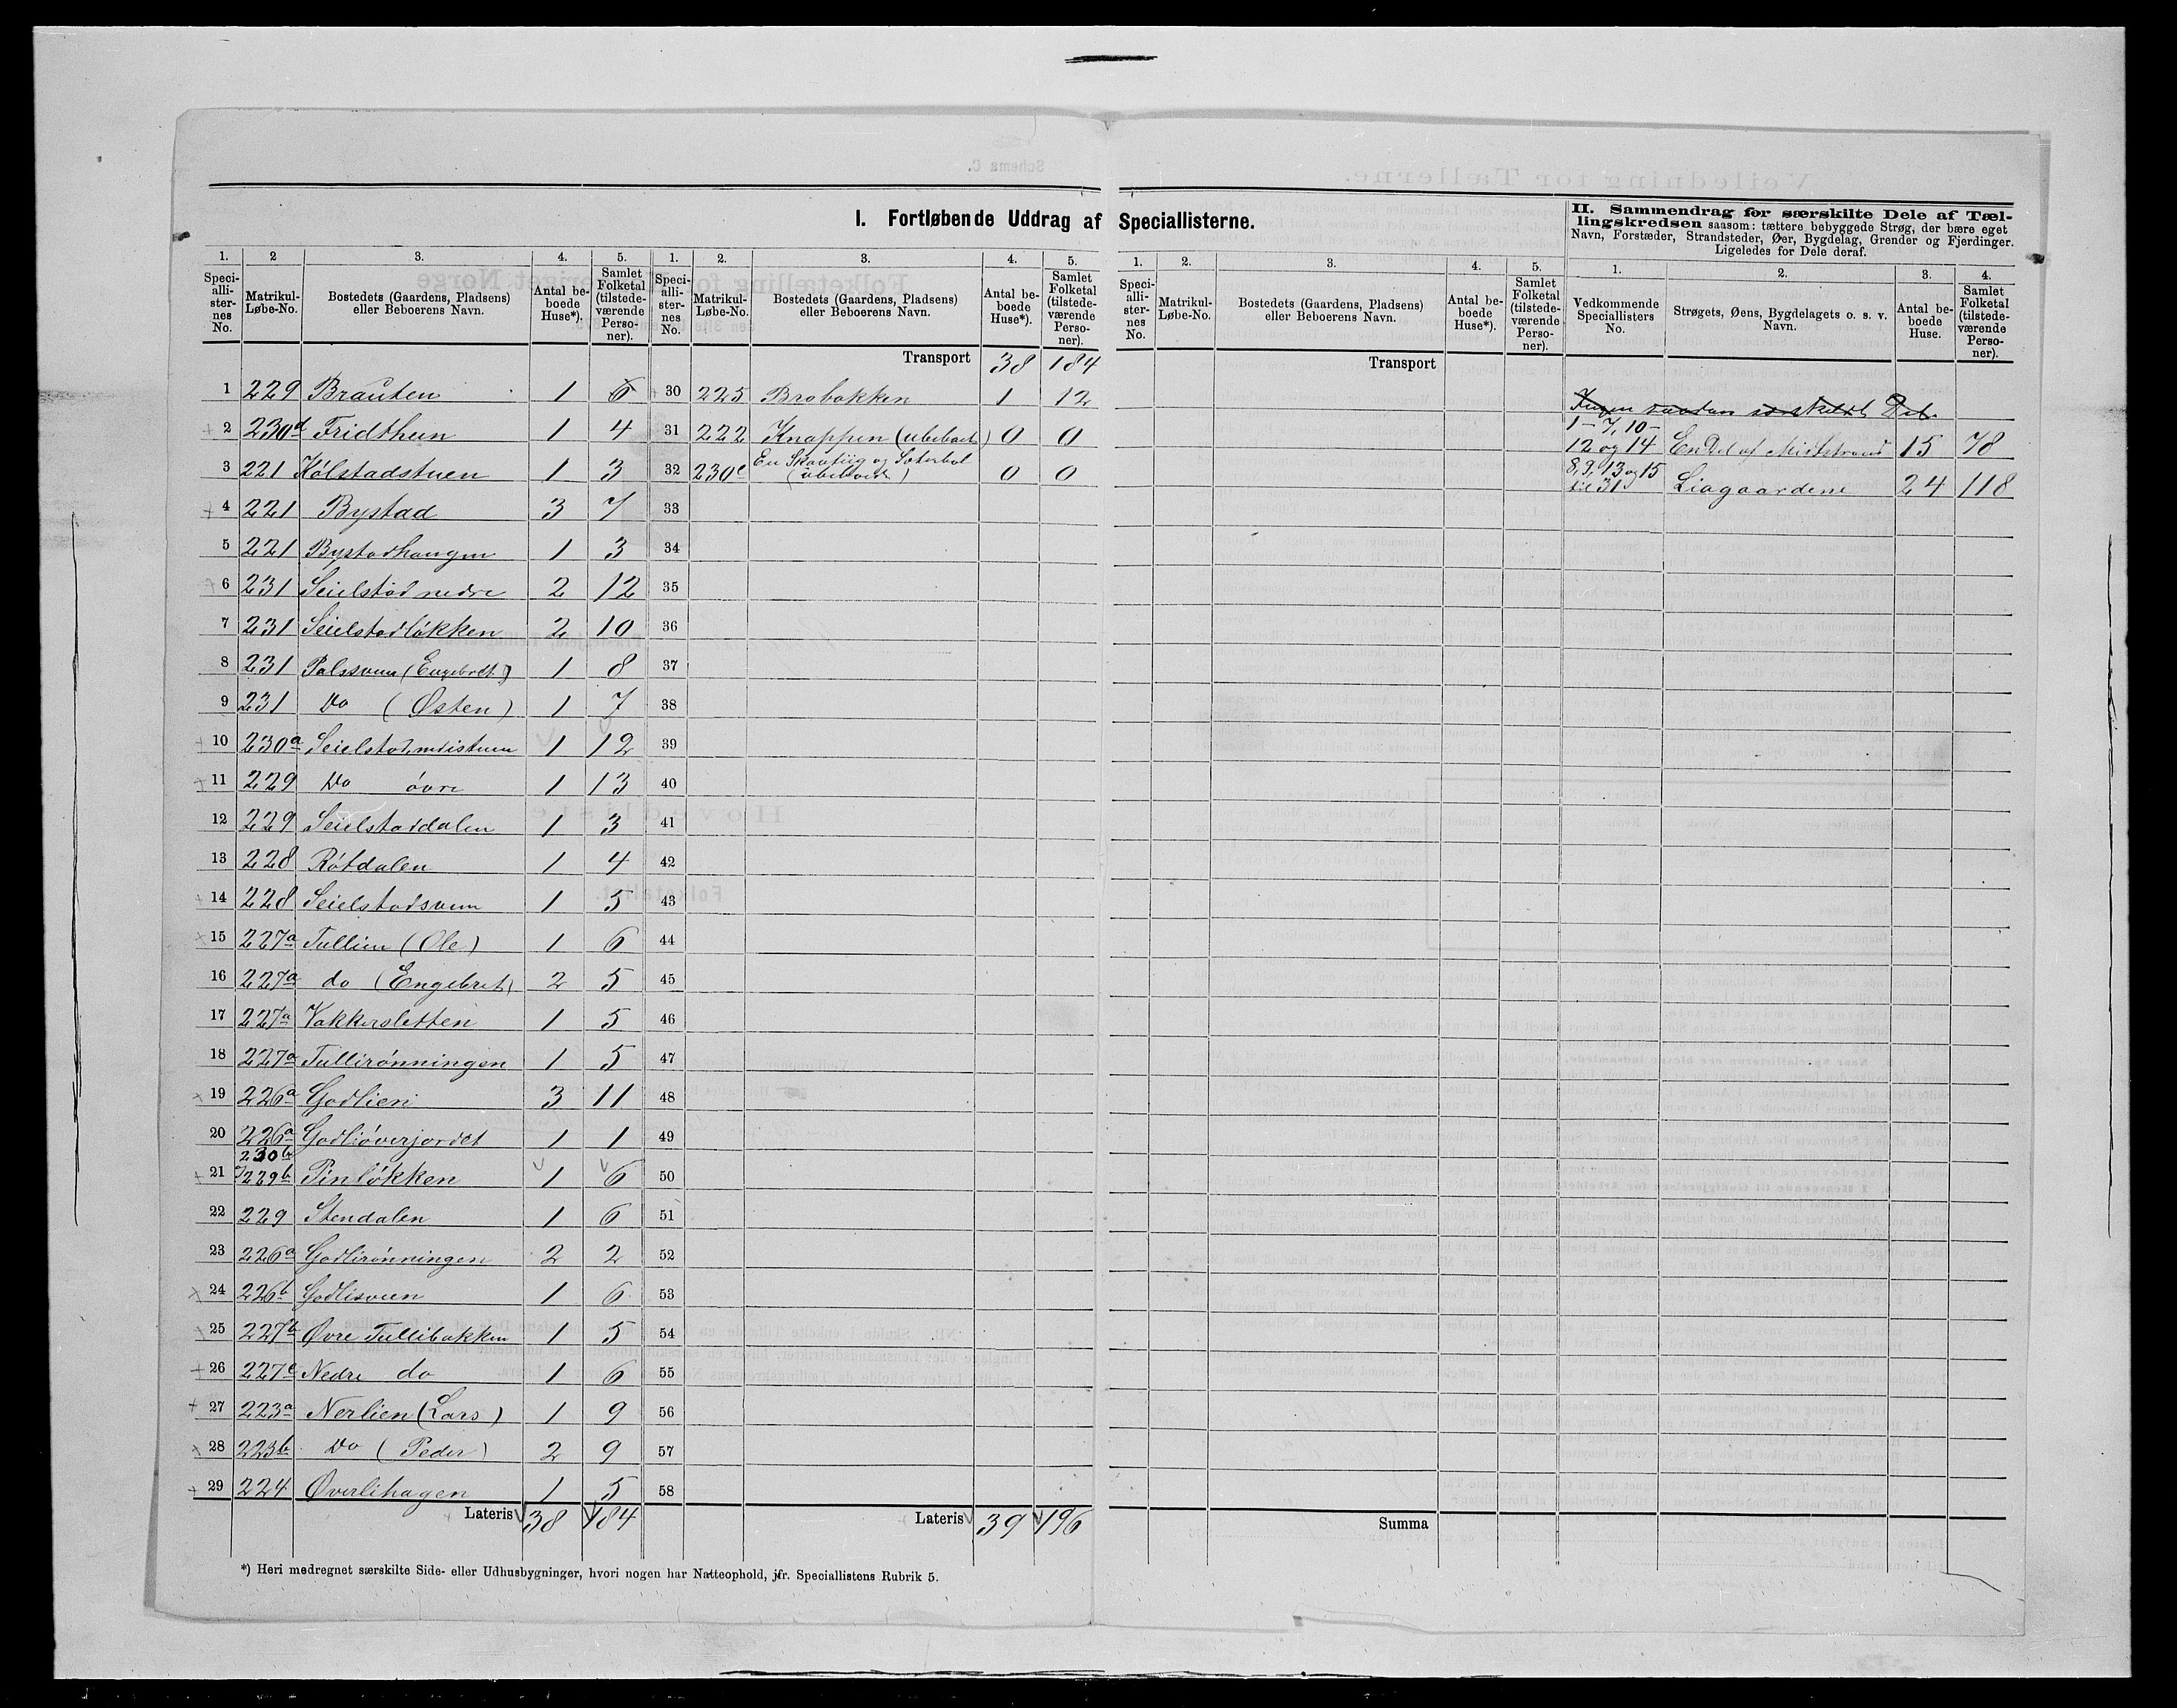 I. Fortløbende Uddrag af Speciallisterne.
II. Sammendrag for særskilte Dele af Tællingskredsen saasom: tættere bebyggede Strøg, der bære eget
Navn, Forstæder, Strandsteder, Øer, Bygdelag, Grender og Fjerdinger.
Ligeledes for Dele deraf.
1. 2 3. 4. 5. 1. 2. 3. 4. 5. 1. 2. 3. 4. 5. 1. 2. 3. 4.
Speciallisternes No. Matrikul-Løbe-No. Bostedets (Gaardens, Pladsens) eller Beboerens Navn. Antal beboede Huse*). Samlet Folketal (tilstedeværende Personer).
Speciallisternes No. Matrikul-Løbe-No. Bostedets (Gaardens, Pladsens) eller Beboerens Navn. Antal beboede Huse*). Samlet Folketal (tilstedeværende Personer).
Speciallisternes No. Matrikul-Løbe-No. Bostedets (Gaardens, Pladsens) eller Beboerens Navn. Antal beboede Huse*). Samlet Folketal (tilstedeværende Personer).
Vedkommende Speciallisters No. Strøgets, Øens, Bygdelagets o. s. v. Navn. Antal beboede Huse. Samlet Folketal (tilstedeværende Personer).
1 229 Brauten 1 6
2 230d Fridthun 1 4
3 221 Kølstadstuen 1 3
4 221 Bystad 3 7
5 221 Bystadhaugen 1 3
6 231 Seielstad nedre 2 12
7 231 Seielstadløkken 2 10
8 231 Palssveen (Engebret) 1 8
9 231 Do (Østen) 1 7
10 230a Seielstad, midtstuen 1 12
11 229 Do øvre 1 13
12 229 Seielstaddalen 1 3
13 228 Røtdalen 1 4
14 228 Seielstadsveen 1 5
15 227a Tullien (Ole) 1 6
16 227a do (Engebret) 2 5
17 227a Vakkersletten 1 5
18 227a Tullirønningen 1 5
19 226a Godlien 3 11
20 226a Godliøverjordet 1 1
230b
21 229b Pinløkken 1 6
22 229 Stendalen 1 6
23 226a Godlirønningen 2 2
24 226b Godlisveen 1 6
25 227b Øvre Tullibakken 1 5
26 227c Nedre do 1 6
27 223a Nerlien (Lars) 1 9
28 223b Do (Peder) 2 9
29 224 Øverlihagen 1 5
Lateris 38 184
Transport 38 184
30 225 Brobakken 1 12
31 222 Knappen (ubeboet) 0 0
32 230e En Skovteig og Sæterbol (ubeboede) 0 0
33
34
35
36
37
38
39
40
41
42
43
44
45
46
47
48
49
50
51
52
53
54
55
56
57
58
Lateris 39 196
Transport
Summa
Ingen saadan særskildt Del.
1–7, 10–
12 og 14 En Del af Midtstrand 15 78
8, 9, 13 og 15
til 31 Liagaardene 24 118
*) Heri medregnet særskilte Side- eller Udhusbygninger, hvori nogen har Natteophold, jfr. Speciallistens Rubrik 5.